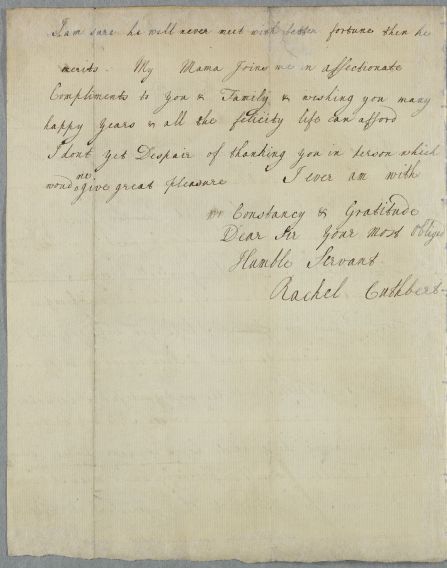 I am sure he will never meet with better fortune then he
merits. My Mama Joins me in affectionate
Compliments to you & Family & wishing you many
happy years & all the felicity life can afford
I dont yet Despair of thanking you in person which
woud give me great pleasure I ever am with
Constancy & Gratitude
Dear Sir your Most Obliged
Humble Servant
Rachel Cuthbert